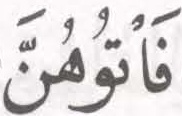 فَاْتُوْهُنَّ